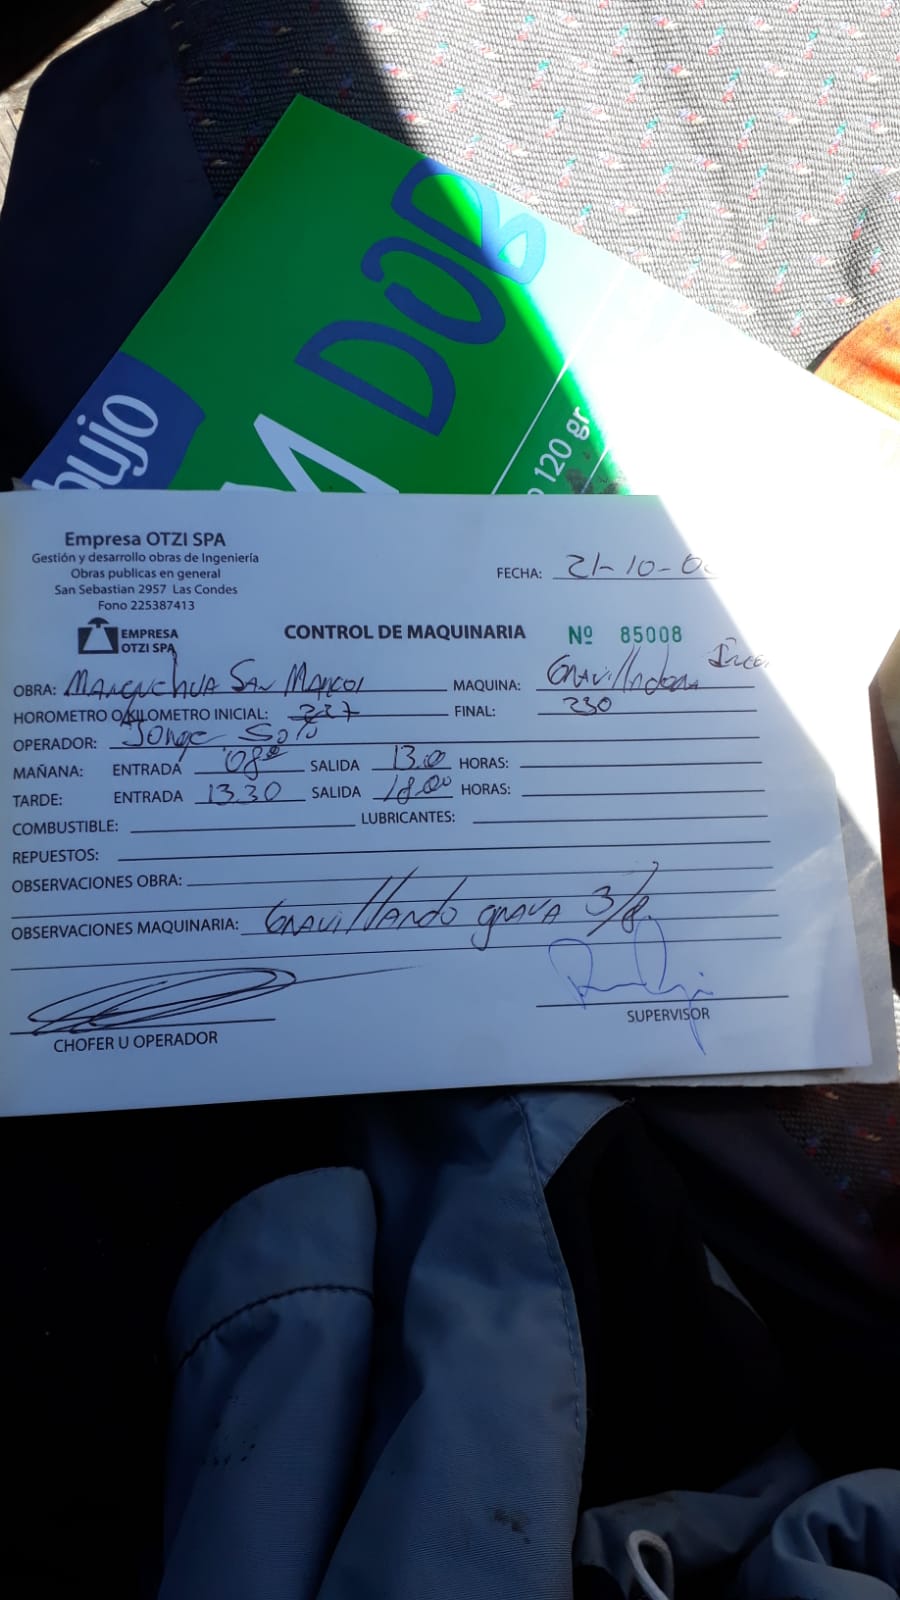 DOB
bujo
120 gr
Empresa OTZI SPA
Gestión y desarrollo obras de Ingeniería
Obras publicas en general
San Sebastian 2957 Las Condes
Fono 225387413
FECHA: 21-10-
EMPRESA
OTZI SPA
CONTROL DE MAQUINARIA Nº 85008
OBRA: San Marcos MAQUINA: Gravilladora
HOROMETRO O KILOMETRO INICIAL: 227 FINAL: 230
OPERADOR: Jorge Soto
MAÑANA: ENTRADA 08 SALIDA 13.0 HORAS:
TARDE: ENTRADA 13.30 SALIDA 18.00 HORAS:
COMBUSTIBLE: LUBRICANTES:
REPUESTOS:
OBSERVACIONES OBRA:
OBSERVACIONES MAQUINARIA: Gravillando grava 3/8.
CHOFER U OPERADOR
SUPERVISOR